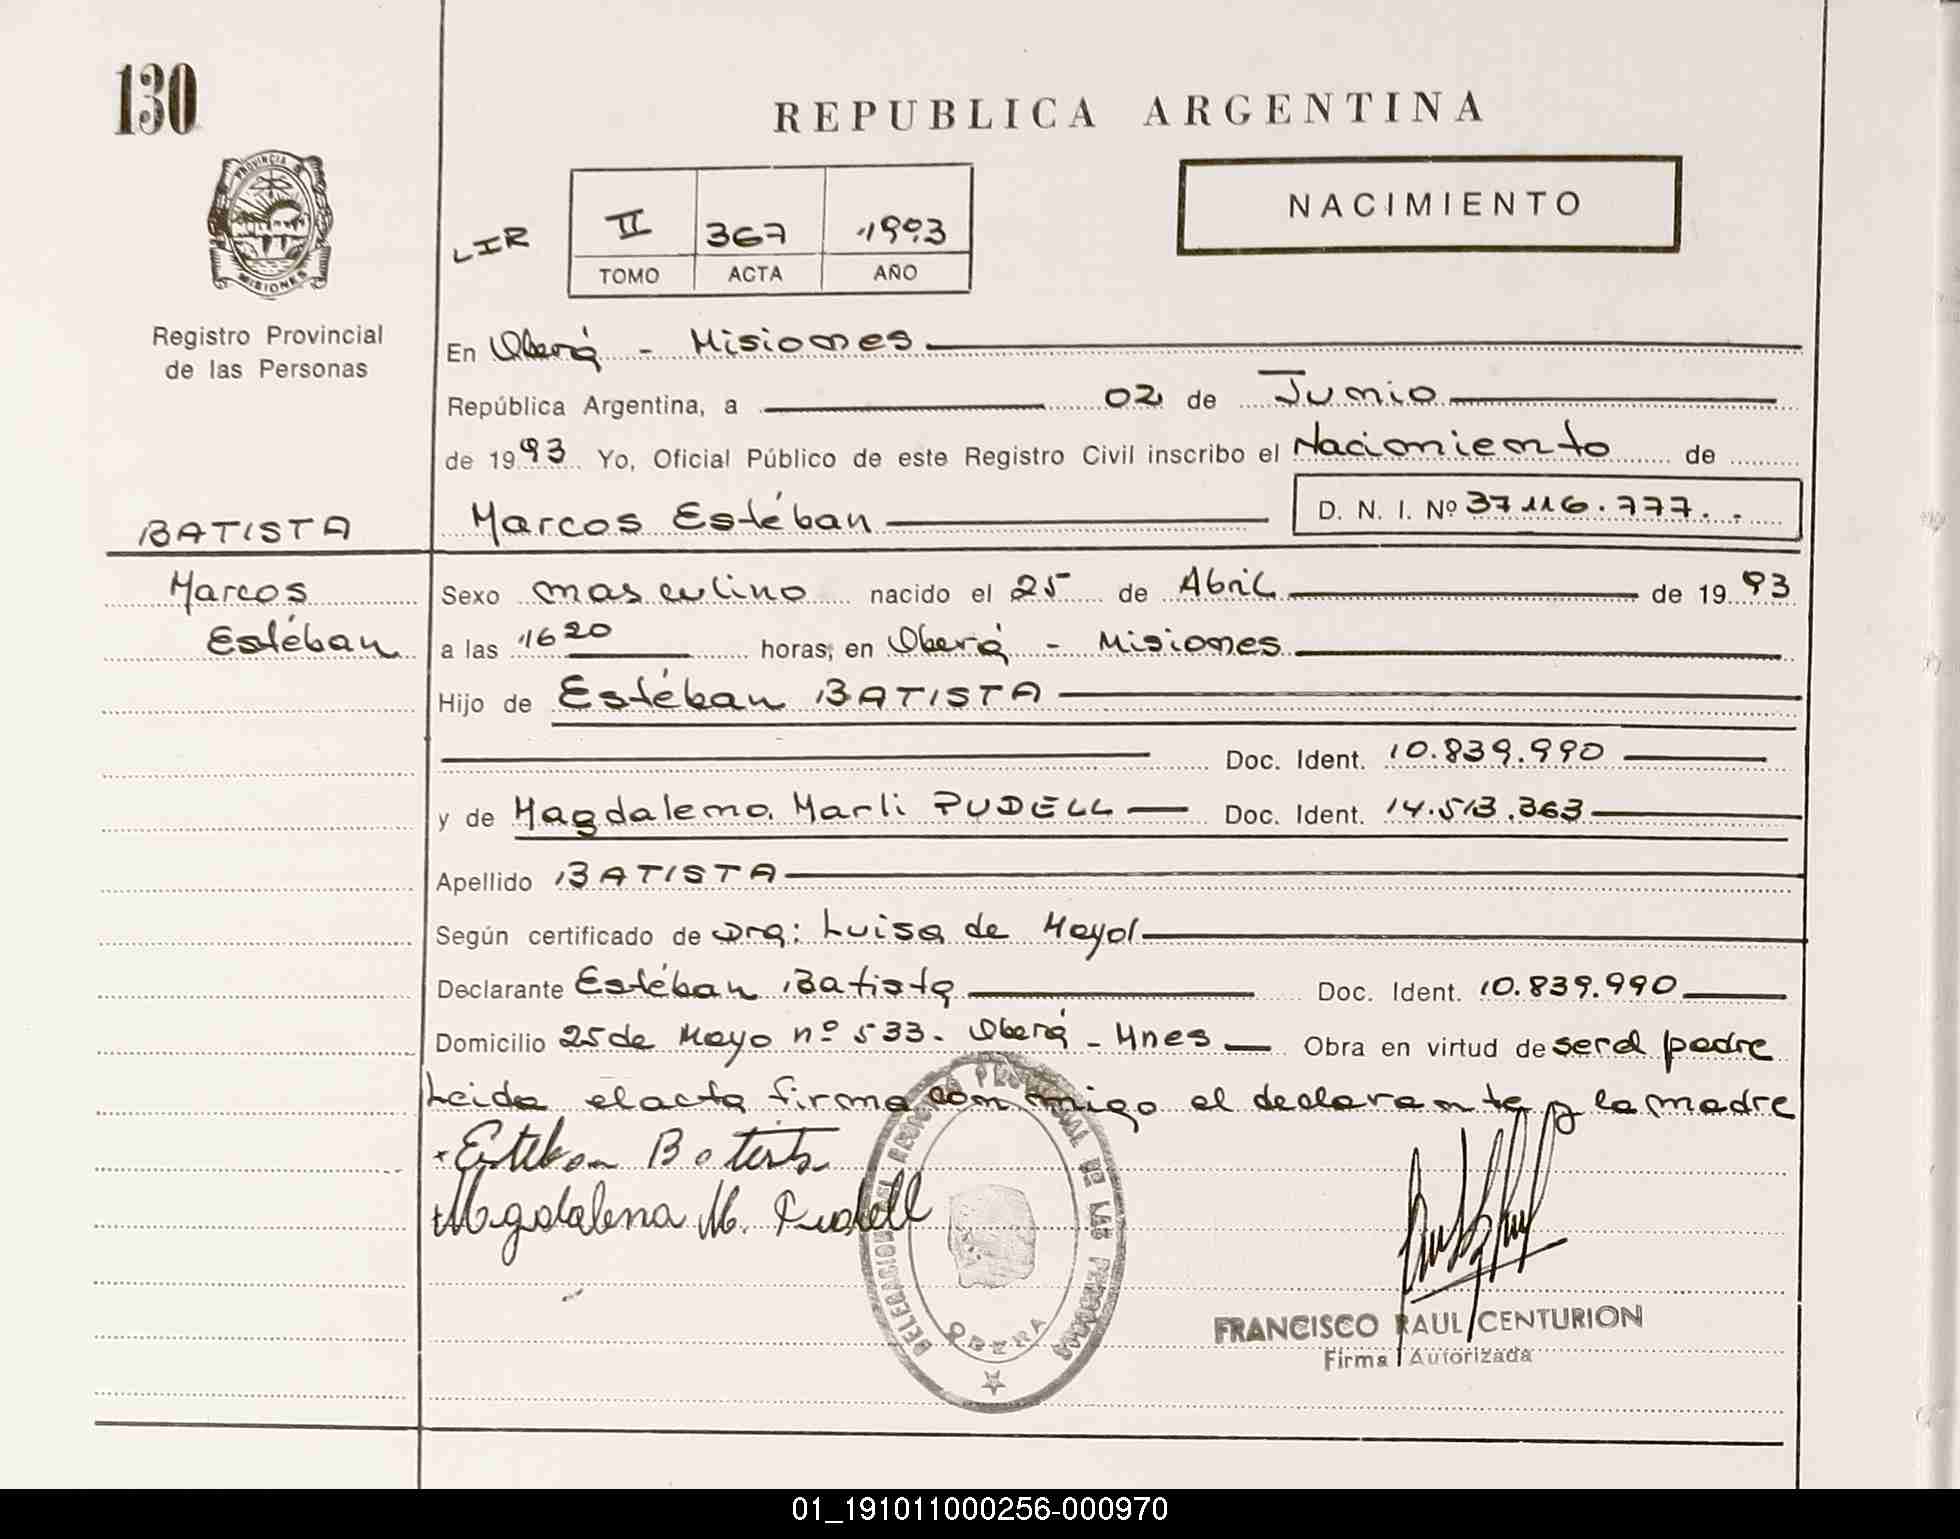 130
REPUBLICA ARGENTINA
PROVINCIA
MISIONES
NACIMIENTO
LIR
II 367 1993
TOMO ACTA AÑO
Registro Provincial
de las Personas
En Oberá - Misiones
República Argentina, a 02 de Junio
de 1993 Yo, Oficial Público de este Registro Civil inscribo el Nacimiento de
BATISTA
Marcos Estéban D. N. I. Nº 37116.777..
Marcos
Estéban
Sexo masculino nacido el 25 de Abril de 1993
a las 16 20 horas, en Oberá - Misiones
Hijo de Estéban BATISTA
Doc. Ident. 10.839.990
y de Magdalena Marli PUDELL Doc. Ident. 14.513.363
Apellido BATISTA
Según certificado de Dra: Luisa de Mayol
Declarante Estéban Batista Doc. Ident. 10.839.990
Domicilio 25 de Mayo nº 533. Oberá - Mnes Obra en virtud de ser el padre
Leida el acta firma conmigo el declarante y la madre
Esteban Batista
Magdalena M. Pudell
DELEGACION DEL REGISTRO PROVINCIAL DE LAS PERSONAS
OBERA
FRANCISCO RAUL CENTURION
Firma Autorizada
01_191011000256-000970